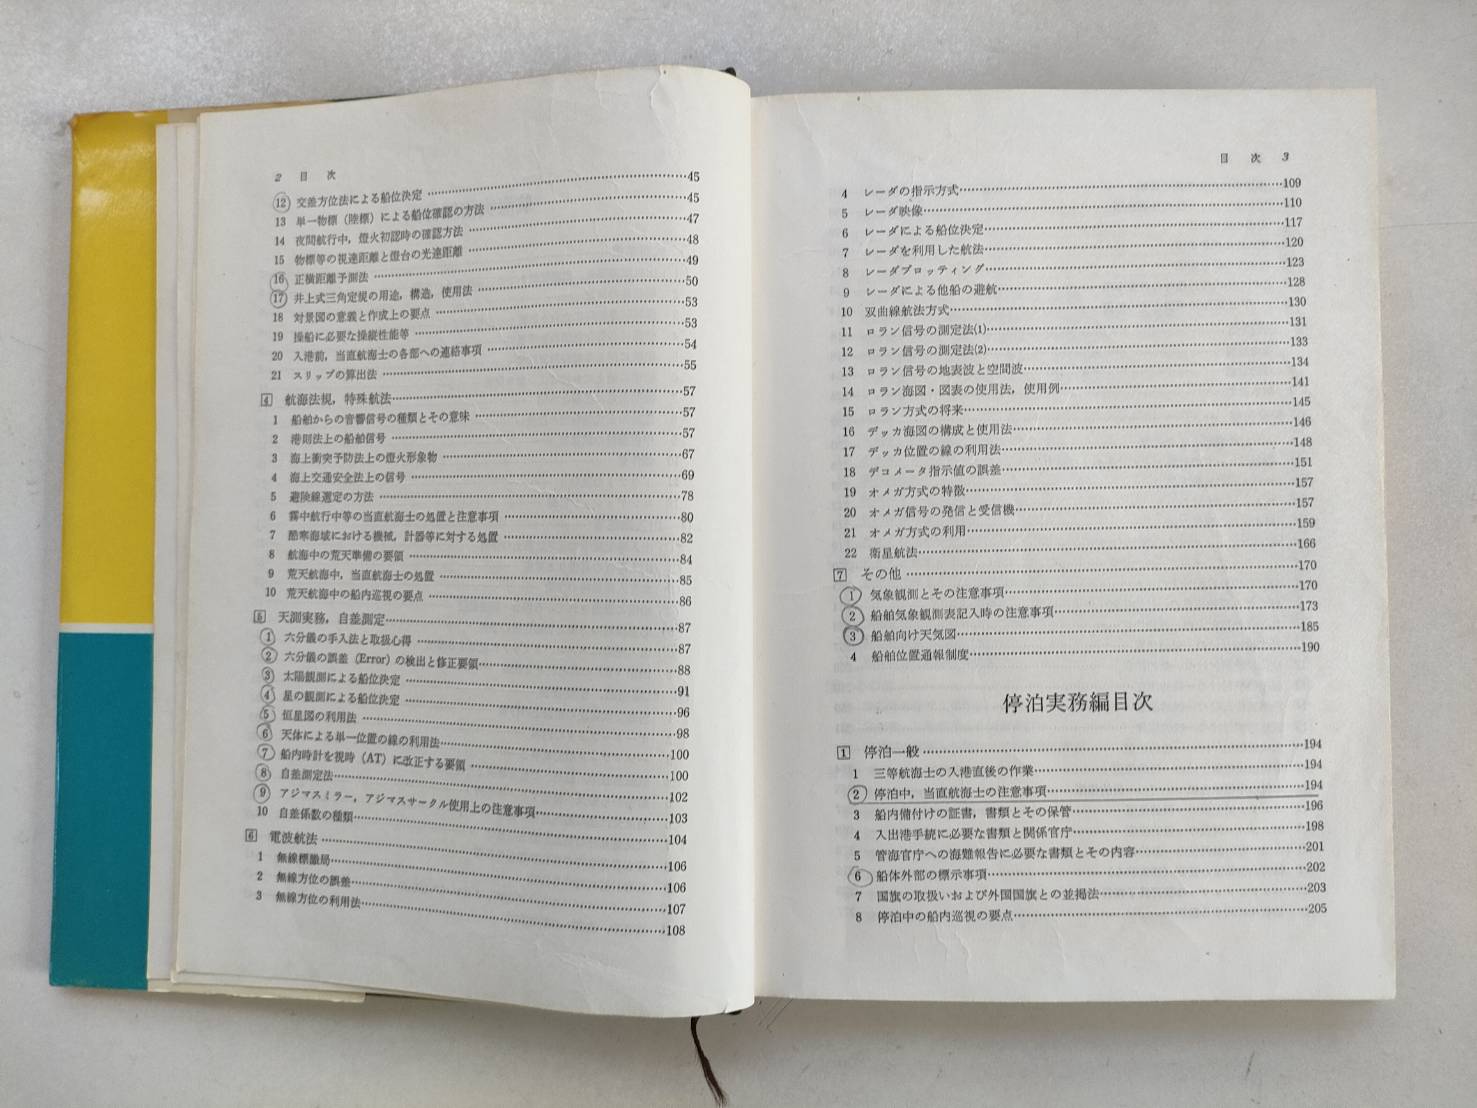 2 目 次
⑫ 交差方位法による船位決定……45
13 単一物標（陸標）による船位確認の方法……45
14 夜間航行中，燈火初認時の確認方法……47
15 物標等の視達距離と燈台の光達距離……48
⑯ 正横距離予測法……49
⑰ 井上式三角定規の用途，構造，使用法……50
18 対景図の意義と作成上の要点……53
19 操船に必要な操縦性能等……53
20 入港前，当直航海士の各部への連絡事項……54
21 スリップの算出法……55
4 航海法規，特殊航法……57
1 船舶からの音響信号の種類とその意味……57
2 港則法上の船舶信号……57
3 海上衝突予防法上の燈火形象物……67
4 海上交通安全法上の信号……69
5 避険線選定の方法……78
6 霧中航行中等の当直航海士の処置と注意事項……80
7 酷寒海域における機械，計器等に対する処置……82
8 航海中の荒天準備の要領……84
9 荒天航海中，当直航海士の処置……85
10 荒天航海中の船内巡視の要点……86
5 天測実務，自差測定……87
① 六分儀の手入法と取扱心得……87
② 六分儀の誤差（Error）の検出と修正要領……88
③ 太陽観測による船位決定……91
④ 星の観測による船位決定……96
⑤ 恒星図の利用法……98
⑥ 天体による単一位置の線の利用法……100
⑦ 船内時計を視時（AT）に改正する要領……100
⑧ 自差測定法……102
⑨ アジマスミラー，アジマスサークル使用上の注意事項……103
10 自差係数の種類……104
6 電波航法……106
1 無線標識局……106
2 無線方位の誤差……107
3 無線方位の利用法……108
目 次 3
4 レーダの指示方式……109
5 レーダ映像……110
6 レーダによる船位決定……117
7 レーダを利用した航法……120
8 レーダプロッティング……123
9 レーダによる他船の避航……128
10 双曲線航法方式……130
11 ロラン信号の測定法(1)……131
12 ロラン信号の測定法(2)……133
13 ロラン信号の地表波と空間波……134
14 ロラン海図・図表の使用法，使用例……141
15 ロラン方式の将来……145
16 デッカ海図の構成と使用法……146
17 デッカ位置の線の利用法……148
18 デコメータ指示値の誤差……151
19 オメガ方式の特徴……157
20 オメガ信号の発信と受信機……157
21 オメガ方式の利用……159
22 衛星航法……166
7 その他……170
① 気象観測とその注意事項……170
② 船舶気象観測表記入時の注意事項……173
③ 船舶向け天気図……185
4 船舶位置通報制度……190
停泊実務編目次
1 停泊一般……194
1 三等航海士の入港直後の作業……194
② 停泊中，当直航海士の注意事項……194
3 船内備付けの証書，書類とその保管……196
4 入出港手続に必要な書類と関係官庁……198
5 管海官庁への海難報告に必要な書類とその内容……201
⑥ 船体外部の標示事項……202
7 国旗の取扱いおよび外国国旗との並掲法……203
8 停泊中の船内巡視の要点……205